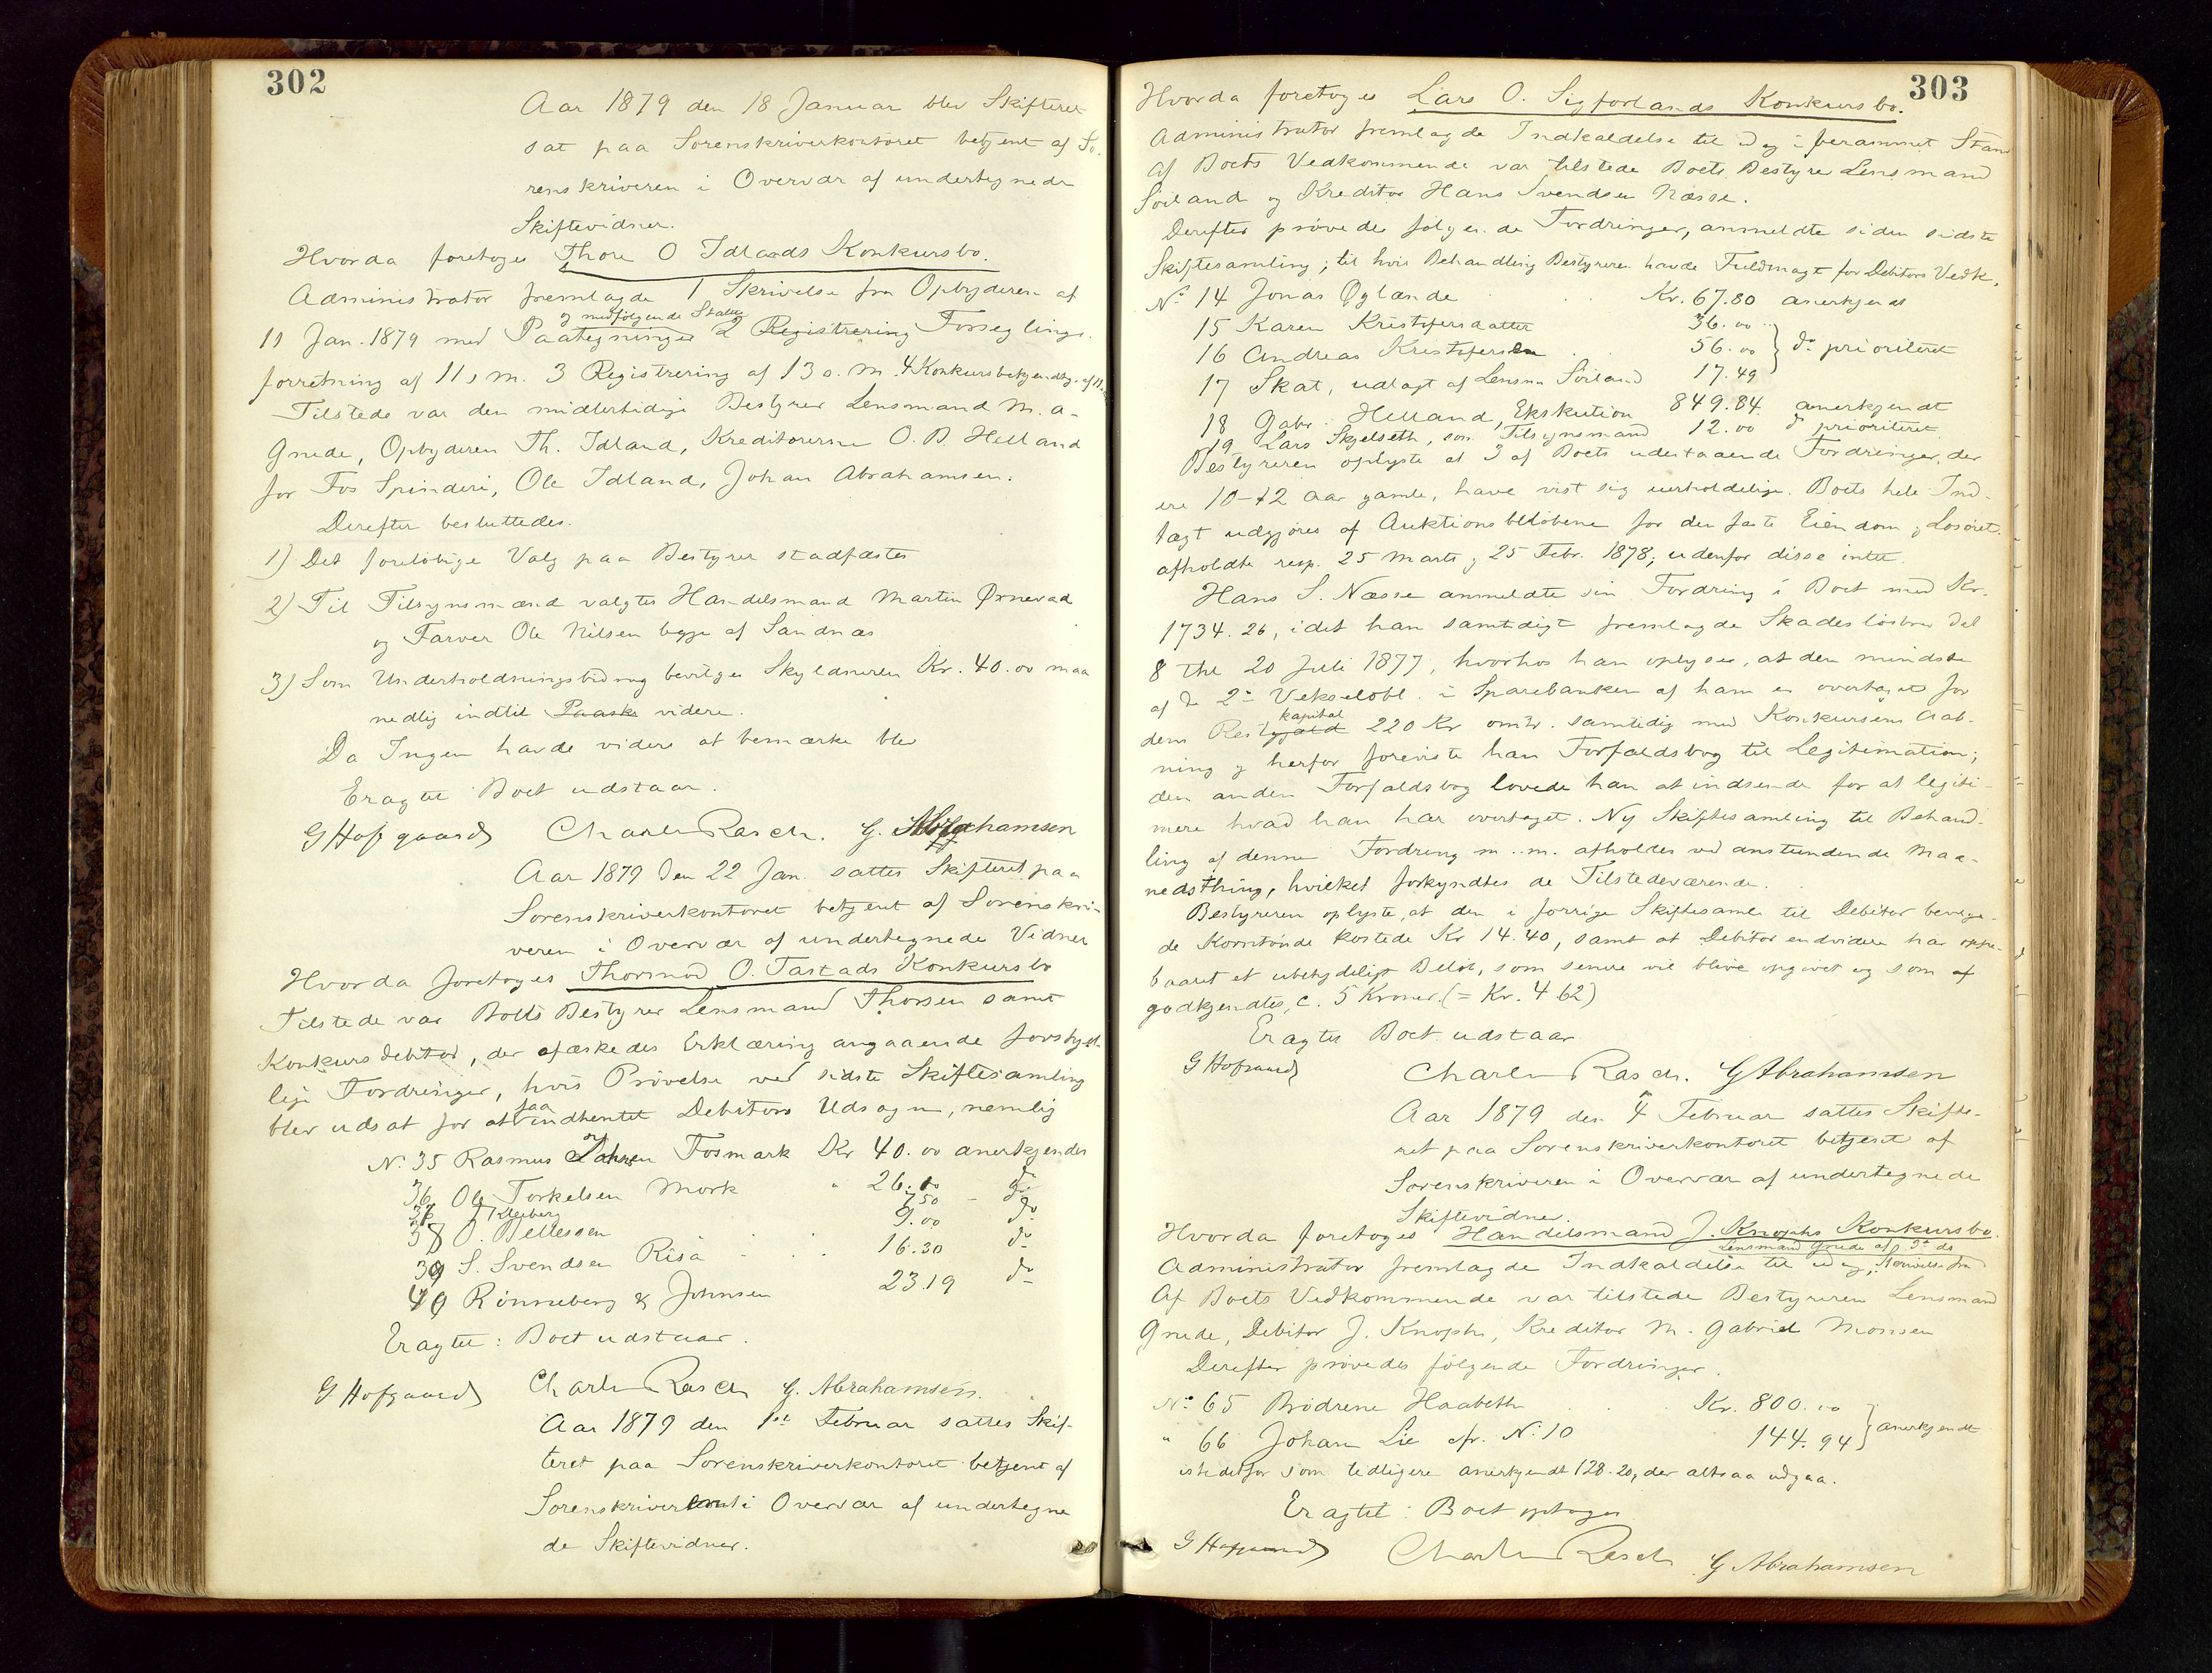 302
Aar 1879 den 18 Januar blev Skifteret
sat paa Sorenskriverkontoret betjent af So-
renskriveren i Overvær af undertegnede
Skiftevidner.
Hvorda foretoges Thore O Idlands Konkursbo.
Administrator fremlagde 1 Skrivelse fra Opbyderen af
og medfølgende
11 Jan. 1879 med Paategninger 2 Registrering Forseglings-
forretning af 11 s. M. 3 Registrering af 13 s. M. 4 Konkursbekjendtg. af
Tilstede var den midlertidige Bestyrer Lensmand M. A-
Gnede, Opbyderen Th. Idland, Kreditorerne O. B. Helland
for Fos Spinderi, Ole Idland, Johan Abrahamsen.
Derefter besluttedes.
1) Det foreløbige Valg paa Bestyrer stadfæstes
2) Til Tilsynsmænd valgtes Handelsmand Martin Ørnevad
og Farver Ole Nilsen begge af Sandnæs
3) Som Underholdningsbidrag bevilges Skyldneren Kr. 40.00 maa
nedlig indtil Paaske videre.
Da Ingen havde videre at bemærke blev
Eragtet Boet udstaar.
G Hofgaard Charles Rasch. G. Abrahamsen
Aar 1879 den 22 Jan. sattes Skifteret paa
Sorenskriverkontoret betjent af Sorenskri-
veren i Overvær af undertegnede Vidner
Hvorda foretoges Thormod O. Tastads Konkursbo
Tilstede var Boets Bestyrer Lensmand Thorsen samt
Konkursdebitor, der afæskedes Erklæring angaaende forskjel-
lige Fordringer, hvis Prøvelse ved sidste Skiftesamling
faa
blev udsat for at indhentet Debitors Udsagn, nemlig
No. 35 Rasmus Fosmark Kr 40.00 anerkjendes
36 Ole Torkelsen Mork " 26. do
37 Kleiberg 7.50 - do
38 O. Pellesen 9.00 do
39 S. Svendsen Risa 16.30 do
40 Rønneberg & Johnsen 23.19 do
Eragtet: Boet udstaar.
G. Hofgaard Charles Rasch G. Abrahamsen.
Aar 1879 den 1ste Februar sattes Skif-
teret paa Sorenskriverkontoret betjent af
Sorenskriveren i Overvær af undertegne
de Skiftevidner.
303
Hvorda foretoges Lars O. Sigforlands Konkursbo.
Administrator fremlagde Indkaldelse til idag i forammet Stand
Af Boets Vedkommende var tilstede Boets Bestyrer Lensmand
Soiland og Kreditor Hans Svendsen Næsse.
Derefter prøvedes følgende Fordringer, anmeldte siden sidste
Skiftesamling; til hvis Behandling Bestyreren havde Fuldmagt for Debitors Vedk.
No 14 Jonas Øglænde Kr. 67.80 anerkjendt
15 Karen Kristofersdatter 36.00
16 Andreas Kristofersen 56.00 } do prioriteret
17 Skat, udlagt af Lensm Soiland 17.49
18 Gabr. Helland, Ekskution 849.84 anerkjendt
19 Lars Skjelseth, som Tilsynsmand 12.00 do prioriteret
Bestyreren oplyste at 3 af Boets udestaaende Fordringer, der
ere 10-12 Aar gamle, have vist sig uerholdelige. Boets hele Ind-
tægt udgjøres af Auktionsbeløbene for den faste Eiendom og Løsøret.
afholdte resp. 25 Marts og 25 Febr. 1878; udenfor disse intet.
Hans S. Næsse anmeldte sin Fordring i Boet med Kr.
1734.26, idet han samtidigt fremlagde Skadesløsbrev dat
8 thl 20 Juli 1877, hvorhos han oplyser, at den mindste
af de 2de Vekselobl. i Sparebanken af ham er overtaget for
kapital
dens Restgjæld 220 Kr omtr. samtidig med Konkursens Aab-
ning og herfor foreviste han Forfaldsbog til Legitimation;
den anden Forfaldsbog lovede han at indsende for at legiti-
mere hvad han har overtaget. Ny Skiftesamling til Behand-
ling af denne Fordring m. m. afholdes ved anstundende Maa-
nedsthing, hvilket forkyndtes de Tilstedeværende.
Bestyreren oplyste, at den i forrige Skiftesaml. til Debitor bevilge-
de Korntønde kostede Kr 14.40, samt at Debitor endvidere har oppe-
baaret et ubetydeligt Beløb, som senere vil blive opgivet og som af
godkjendtes, c. 5 Kroner. (= Kr. 4 62)
Eragtet Boet udstaar
G Hofgaard Charles Rasch. G Abrahamsen
Aar 1879 den 4 Februar sattes Skifte-
ret paa Sorenskriverkontoret betjent af
Sorenskriveren i Overvær af undertegnede
Skiftevidner.
Hvorda foretoges Handelsmand J. Knophs Konkursbo.
Lensmand Gnede af
Administrator fremlagde Indkaldelse til idag, Skrivelse fra
Af Boets Vedkommende var tilstede Bestyreren Lensmand
Gnede, Debitor J. Knophs, Kreditor M. Gabriel Monsen
Derefter prøvedes følgende Fordringer.
No 65 Brødrene Haabeth Kr. 800.00
" 66 Johan Lie cfr. No 10 144.94 } anerkjendt
istedetfor som tidligere anerkjendt 128.20, der altsaa udgaa.
Eragtet: Boet optages
G Hofgaard Charles Rasch G Abrahamsen